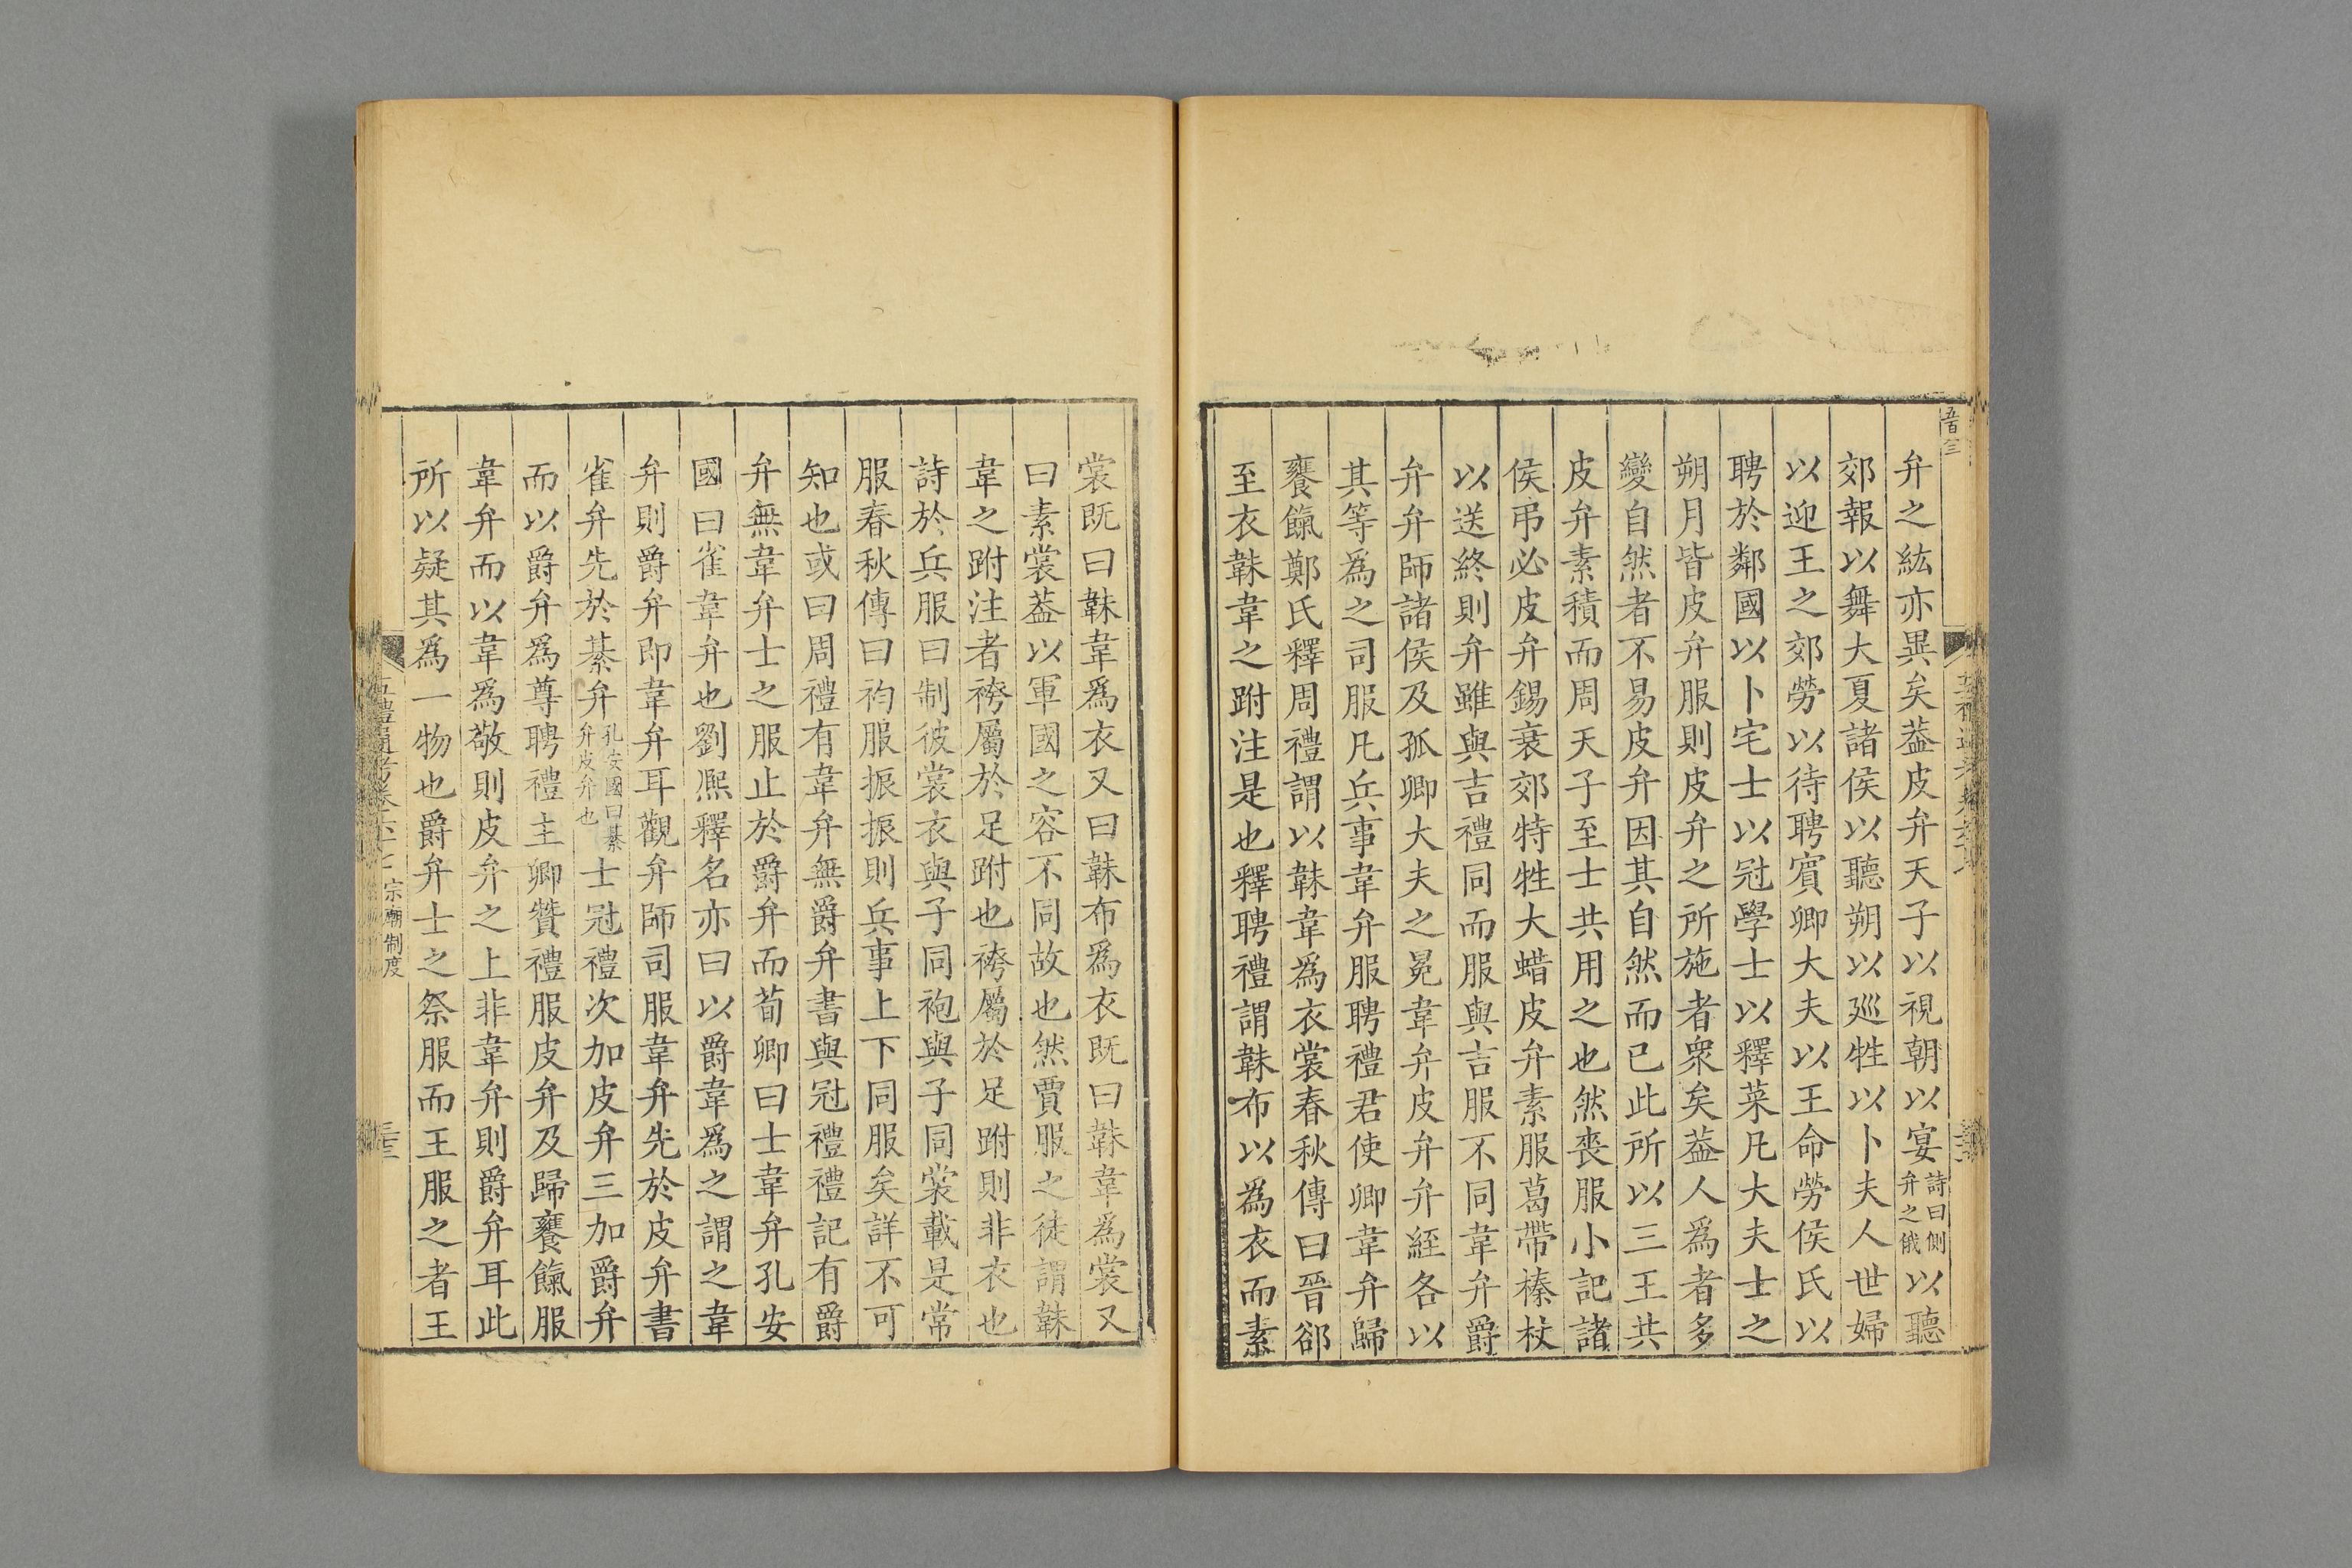 弁之紘亦異矣葢皮弁天子以視朝以宴詩曰側弁之俄以聽
郊報以舞大夏諸侯以聽朔以廵牲以卜夫人世婦
以迎王之郊勞以待聘賓卿大夫以王命勞侯氏以
聘於鄰國以卜宅士以冠學士以釋菜凡大夫士之
朔月皆皮弁服則皮弁之所施者衆矣葢人爲者多
變自然者不易皮弁因其自然而已此所以三王共
皮弁素積而周天子至士共用之也然喪服小記諸
侯弔必皮弁錫衰郊特牲大蜡皮弁素服葛帶榛杖
以送終則弁雖與吉禮同而服與吉服不同韋弁爵
弁弁師諸侯及孤卿大夫之冕韋弁皮弁弁絰各以
其等爲之司服凡兵事韋弁服聘禮君使卿韋弁歸
饔餼鄭氏釋周禮謂以韎韋爲衣裳春秋傳曰晉郤
至衣韎韋之跗注是也釋聘禮謂韎布以爲衣而素
裳既曰韎韋爲衣又曰韎布爲衣既曰韎韋爲裳又
曰素裳葢以軍國之容不同故也然賈服之徒謂韎
韋之跗注者袴屬於足跗也袴屬於足跗則非衣也
詩於兵服曰制彼裳衣與子同袍與子同裳載是常
服春秋傳曰袀服振振則兵事上下同服矣詳不可
知也或曰周禮有韋弁無爵弁書與冠禮禮記有爵
弁無韋弁士之服止於爵弁而荀卿曰士韋弁孔安
國曰雀韋弁也劉熙釋名亦曰以爵韋爲之謂之韋
弁則爵弁即韋弁耳觀弁師司服韋弁先於皮弁書
雀弁先於綦弁孔安國曰綦弁皮弁也士冠禮次加皮弁三加爵弁
而以爵弁爲尊聘禮主卿贊禮服皮弁及歸饔餼服
韋弁而以韋爲敬則皮弁之上非韋弁則爵弁耳此
所以疑其爲一物也爵弁士之祭服而王服之者王
宗廟制度